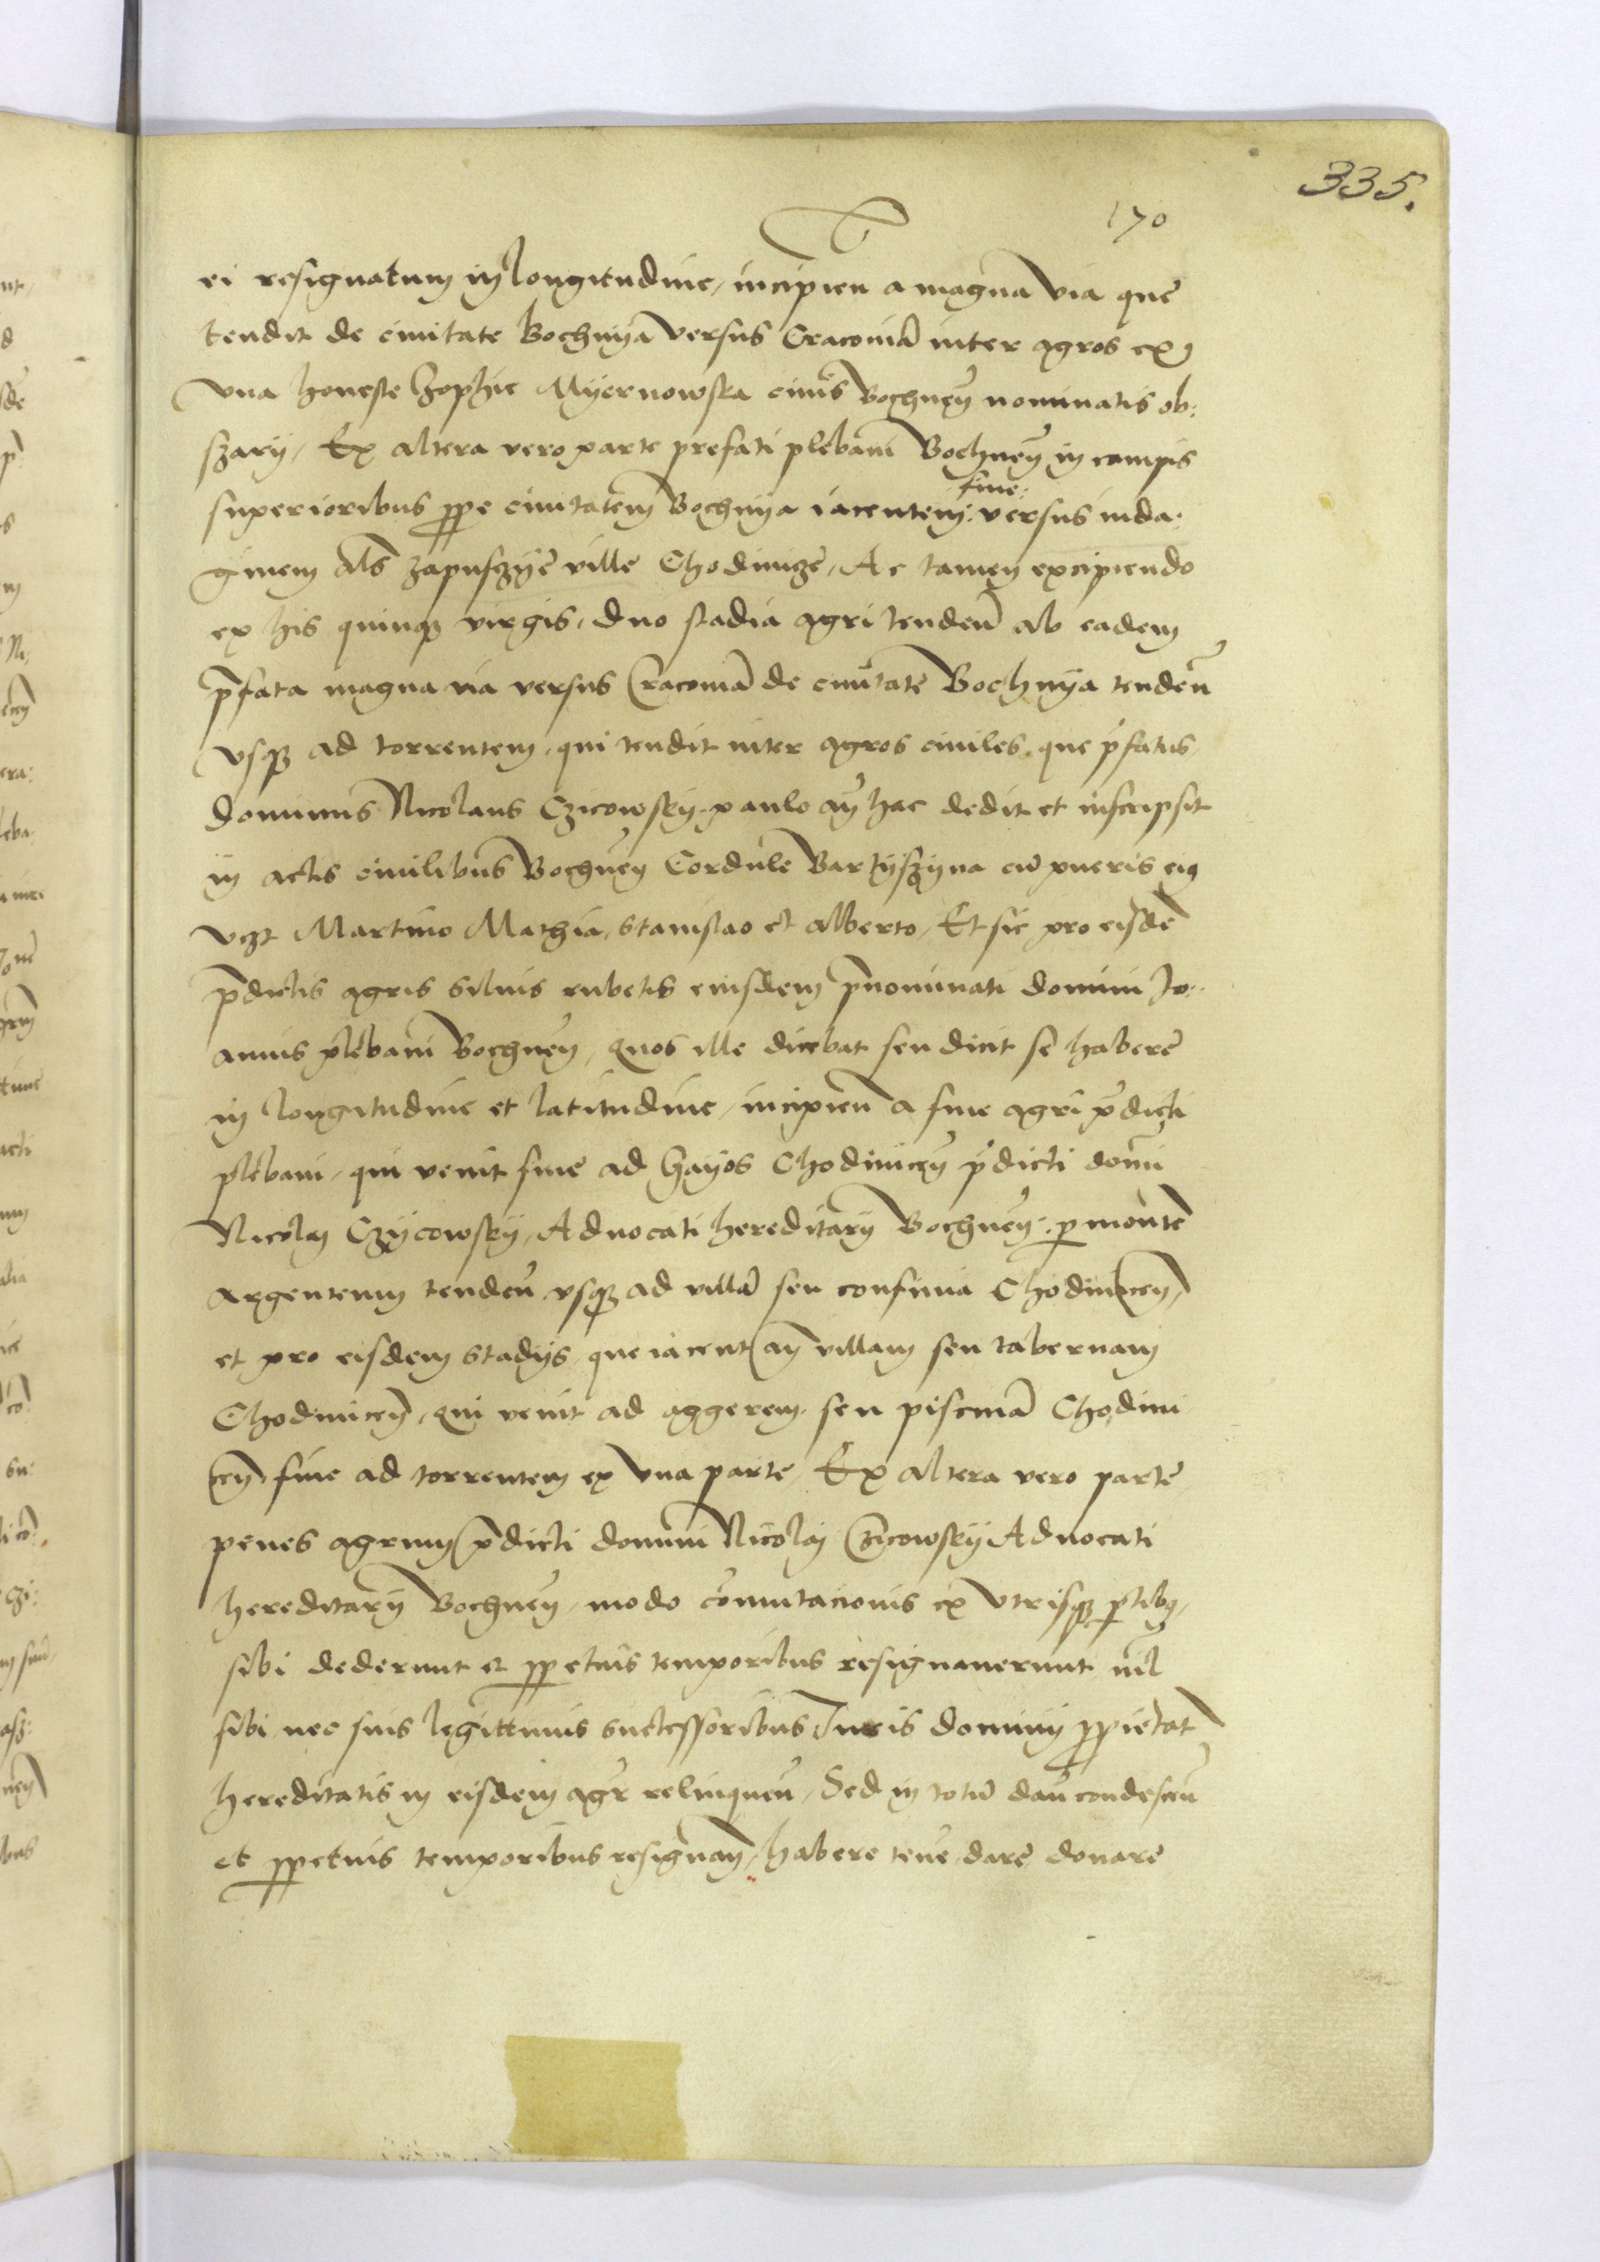 335.
170
ei resignatum in longitudine, incipien a magna via que
tendit de ciuitate Bochnya versus Cracouiā inter agros ex
vna honeste Zophie Myernowska ciuis Bochneñ nominatis ob:
szary, Ex altera vero parte prefati plebani Bochneñ in campis
superioribus ꝓpe ciuitatem Bochnya iacentem fine: versus inda:
ginem als zapusczye ville Chodinicze, Ac tamen excipiendo
ex his quinqꝫ virgis, duo stadia agri tendeñ ab eadem
p̄fata magna via versus Cracouiā de ciuitate Bochnya tendeñ
vsqꝫ ad torrentem, qui tendit inter agros ciuiles, que p̄fatus
dominus Nicolaus Czicowsky, paulo añ hac dedit et inscripsit
in actis ciuilibus Bochneñ Cordule Bartyszyna cū pueris eius
vꝫt Martino Mathia, Stanislao et Alberto, Et sic pro eisdē
p̄dictis agris siluis rubetis eiusdem p̄nominati domini Jo:
annis plebani Bochneñ, quos ille dicebat seu dicit se habere
in longitudine et latitudine, incipieñ a fine agri p̄dicti
plebani, qui venit fine ad Gayos Chodiniceñ p̄dicti domī
Nicolaj Czycowsky, Aduocati hereditarij Bochneñ, ꝑ montē
argenteum tendeñ vsqꝫ ad villā seu confinia Chodiniceñ,
et pro eisdem stadijs, que iacent añ villam seu tabernam
Chodiniceñ, qui venit ad aggerem seu piscinā Chodini
ceñ, fine ad torrentem ex vna parte, Ex altera vero parte
penes agrum p̄dicti domini Nicolaj Czicowsky Aduocati
hereditarij Bochneñ, modo cōmutacionis ex vtrisqꝫ ꝑtibꝫ,
sibi dederunt et ꝑpetuis temporibus resignauerunt nil
sibi nec suis legittimis successoribus Juris dominij ꝓprietat
hereditatis in eisdem agr relinqueñ, Sed in totū dañ condesceñ
et ꝑpetuis temporibus resignañ, habere teñe dare donare